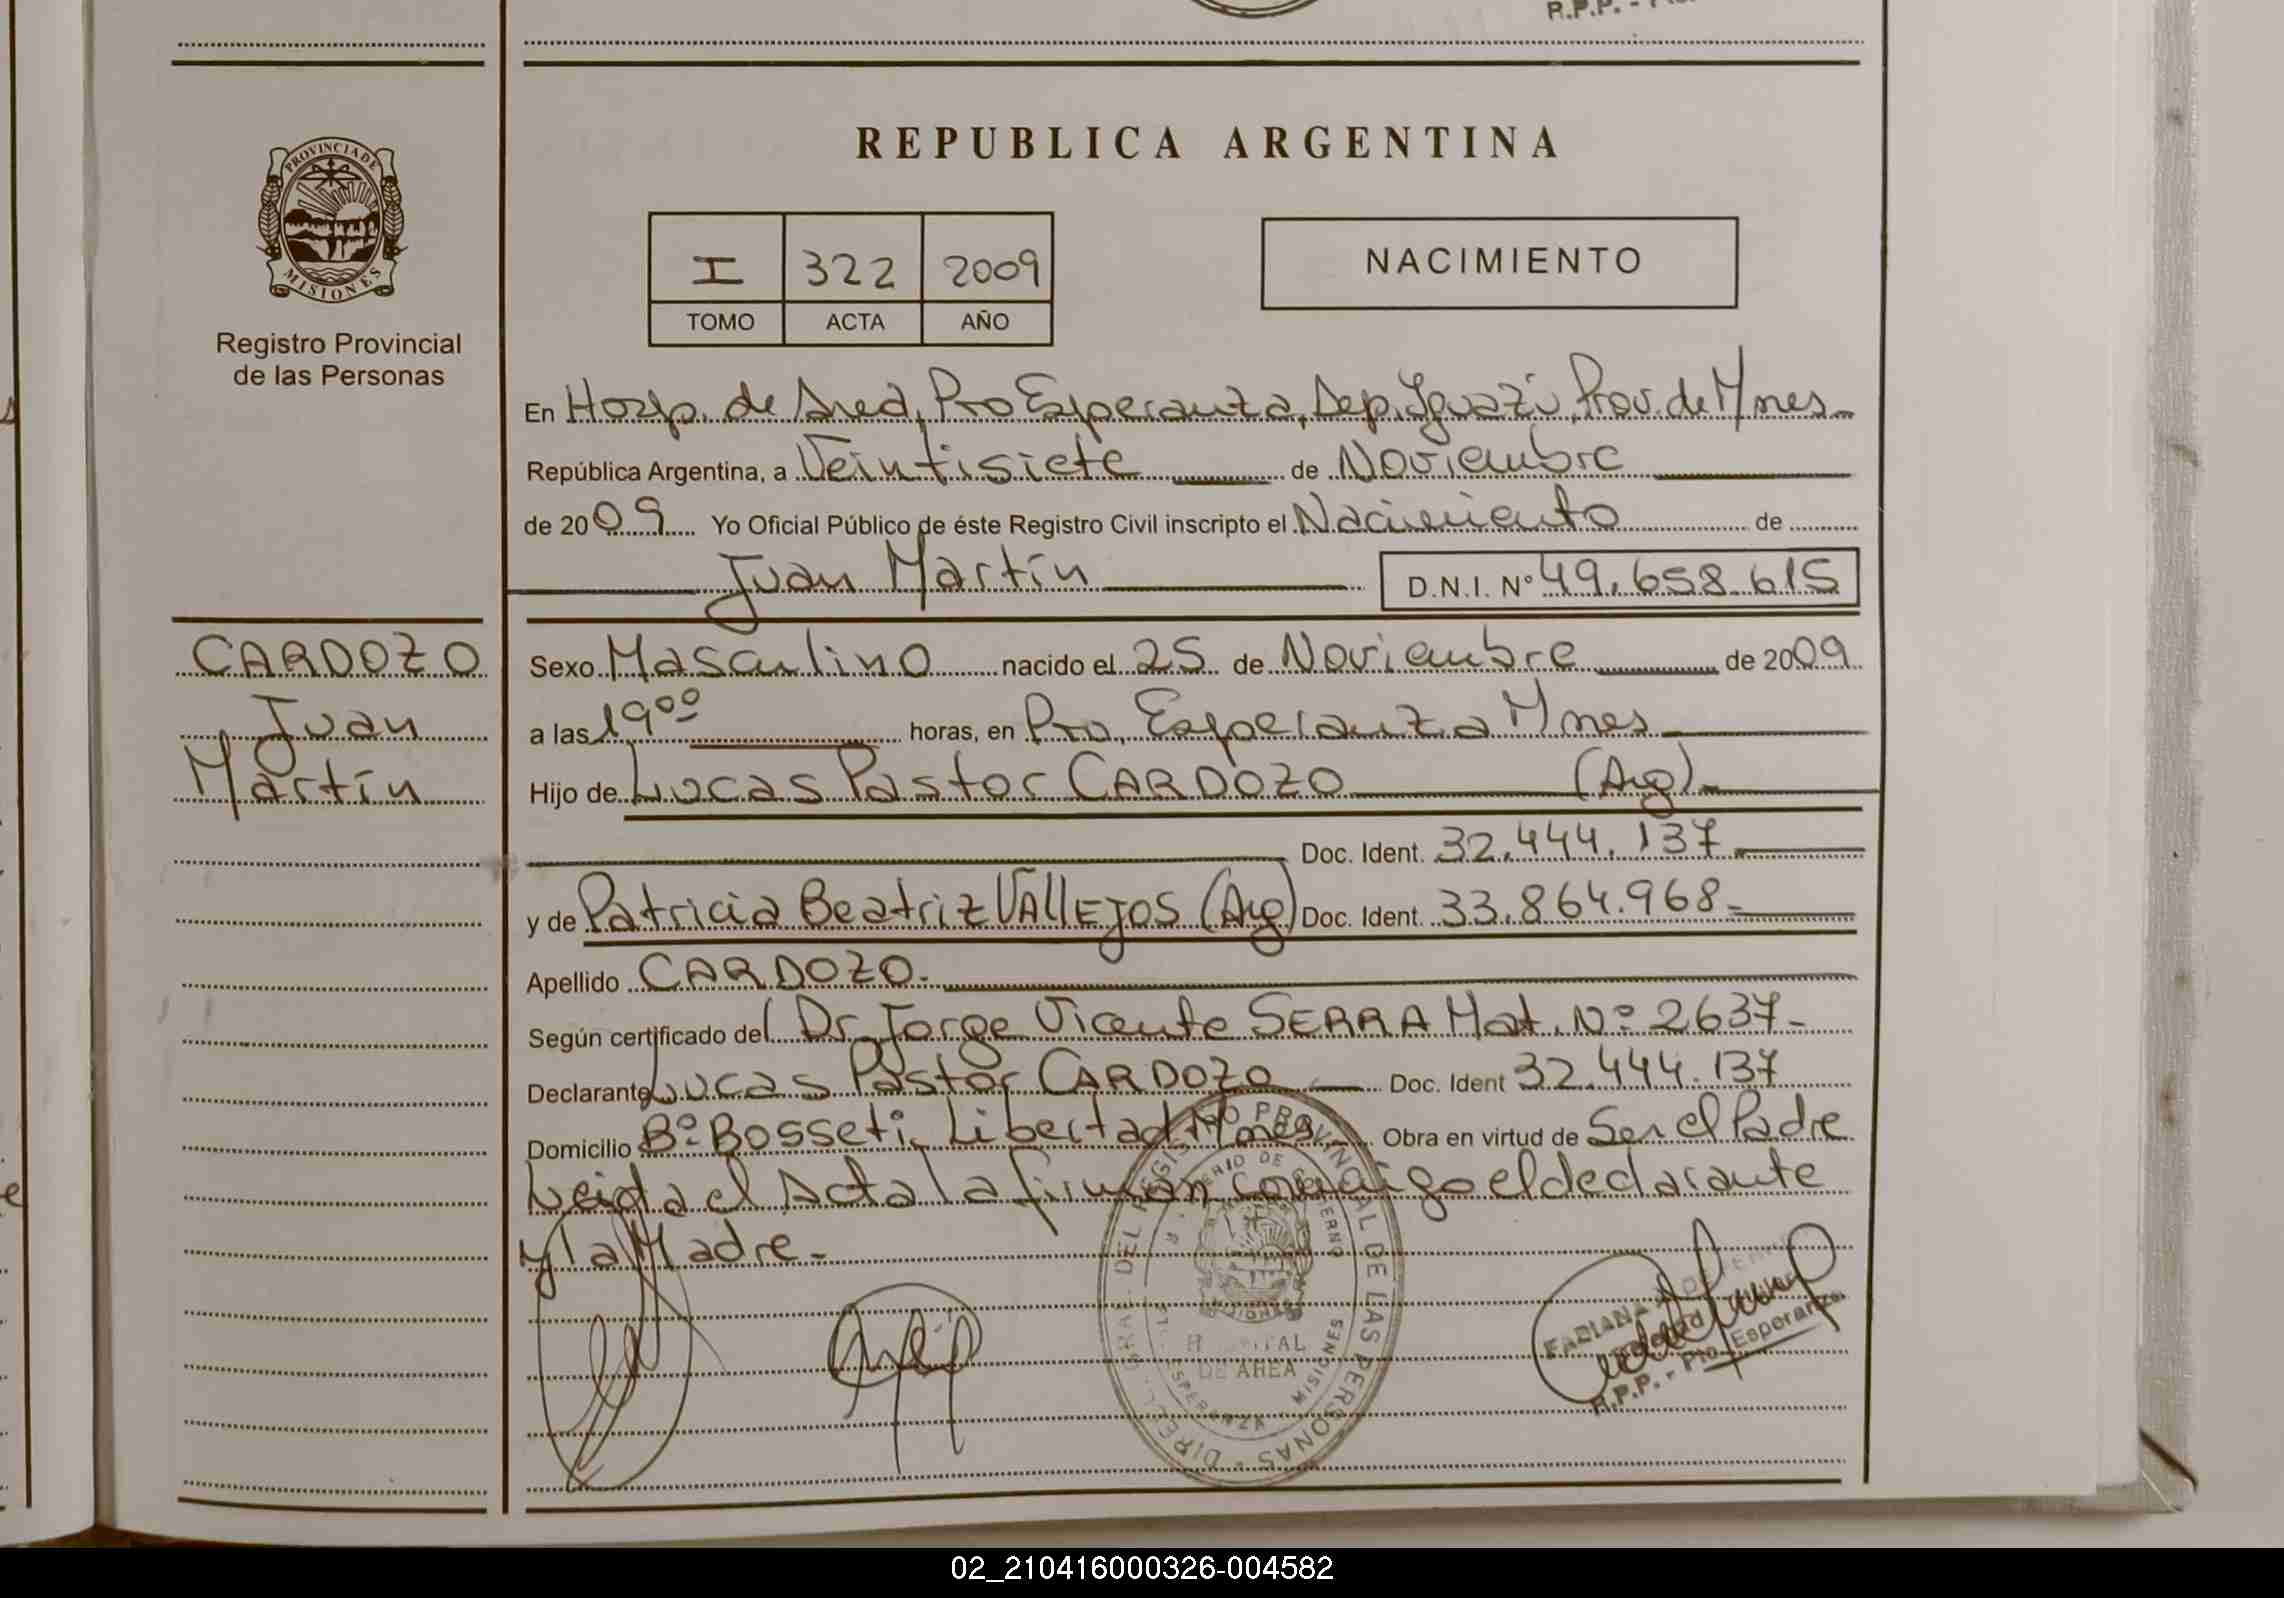 R.P.P. -
REPUBLICA ARGENTINA
PROVINCIA DE
MISIONES
Registro Provincial
de las Personas
I 322 2009
TOMO ACTA AÑO
NACIMIENTO
En Hosp. de Area, Pto Esperanza, Dep. Iguazú, Prov. de Mnes
República Argentina, a Veintisiete de Noviembre
de 2009 Yo Oficial Público de éste Registro Civil inscripto el Nacimiento de
Juan Martín D.N.I. Nº 49.658.615
CARDOZO
Juan
Martín
Sexo Masculino nacido el 25 de Noviembre de 2009
a las 19⁰⁰ horas, en Pto. Esperanza Mnes
Hijo de Lucas Pastor CARDOZO (Arg)
Doc. Ident. 32.444.137
y de Patricia Beatriz VALLEJOS (Arg) Doc. Ident. 33.864.968-
Apellido CARDOZO.
Según certificado del Dr. Jorge Vicente SERRA Mat. Nº 2637-
Declarante Lucas Pastor CARDOZO Doc. Ident 32.444.137
Domicilio Bº Bosseti, Libertad Mnes Obra en virtud de Ser el Padre
Leida el Acta la firman conmigo el declarante
y la Madre.-
DIREC. GRAL. DEL REGISTRO PROVINCIAL DE LAS PERSONAS
MINISTERIO DE GOBIERNO
MISIONES
HOSPITAL
DE AREA
ESPERANZA MISIONES
FABIANA
R.P.P. - Pto. Esperanza
02_210416000326-004582